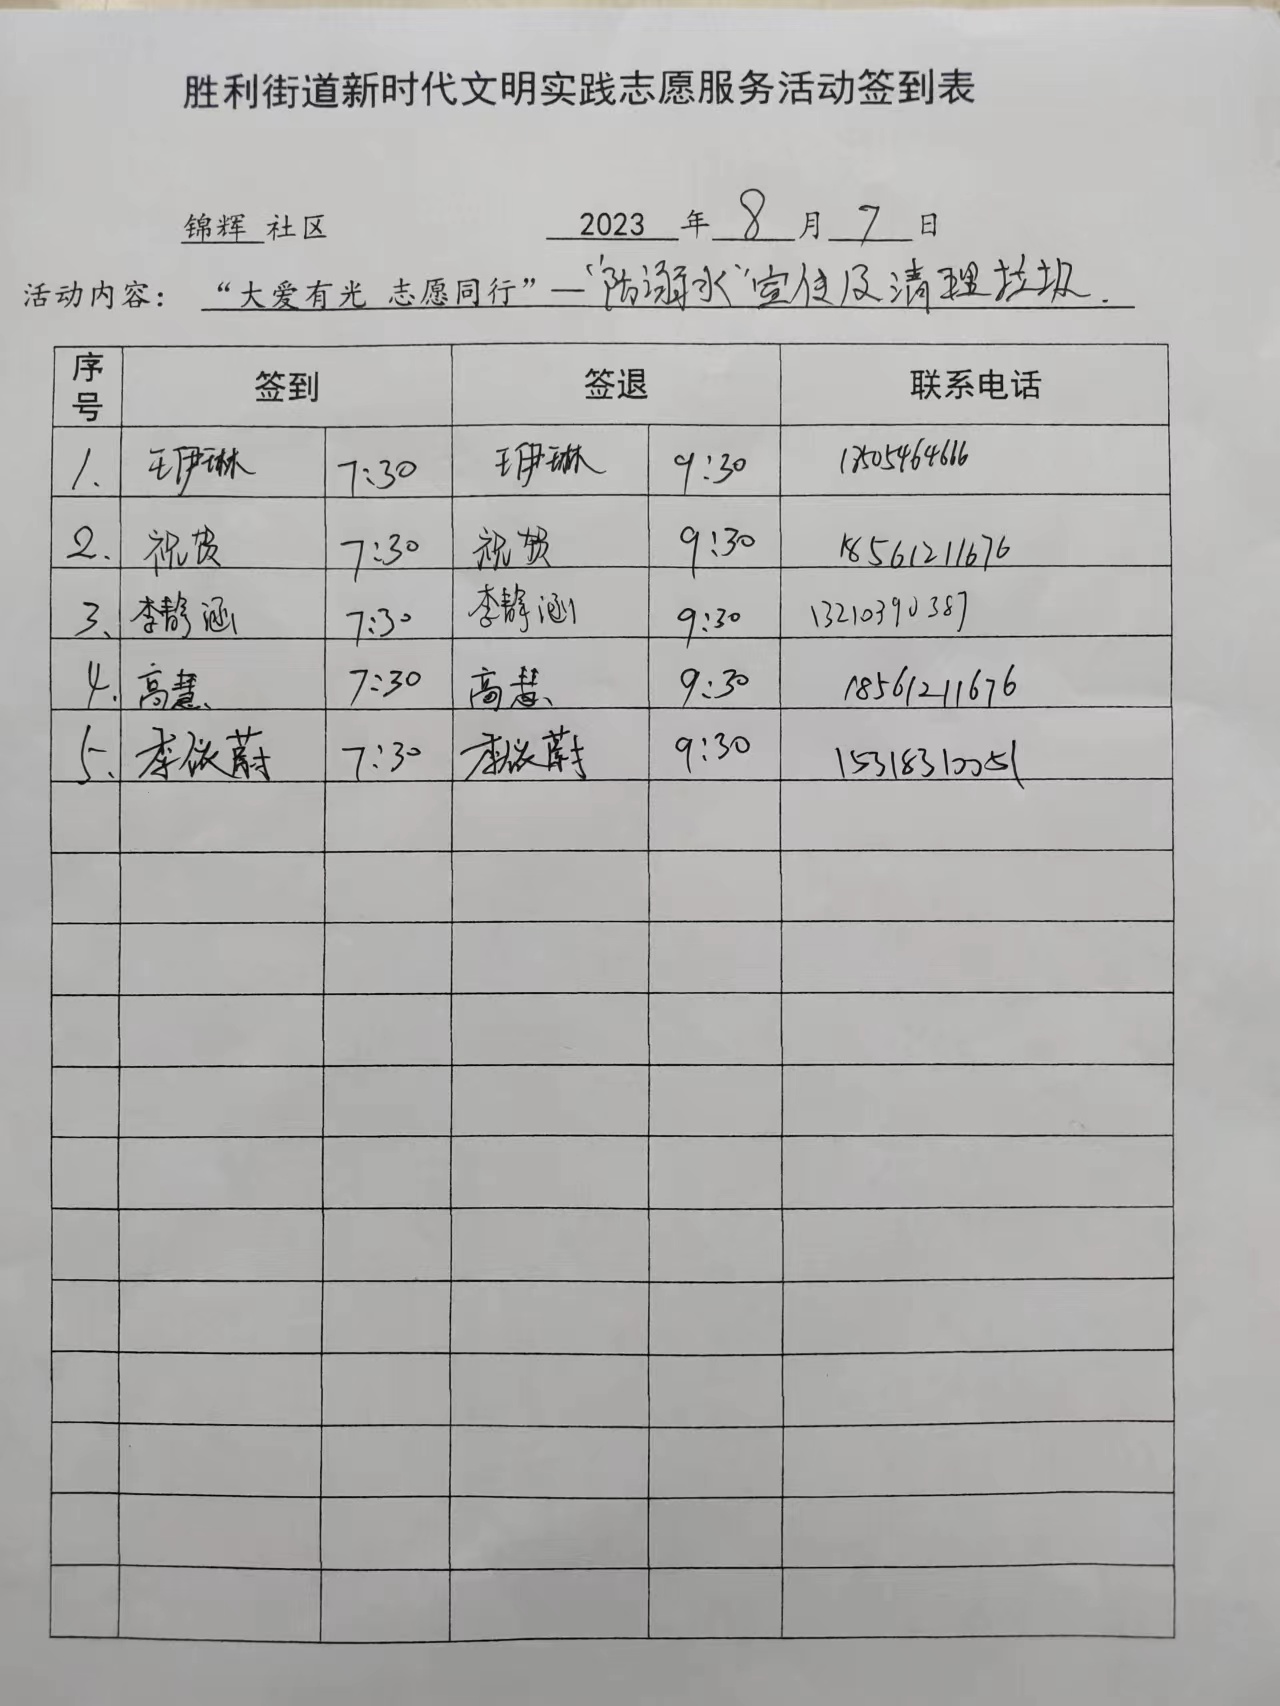 胜利街道新时代文明实践志愿服务活动签到表
锦辉 社区 2023 年 8 月 7 日
活动内容: “大爱有光 志愿同行”—“防溺水”宣传及清理垃圾.
序号 签到 签退 联系电话
1. 王伊琳 7:30 王伊琳 9:30
2. 祝贺 7:30 祝贺 9:30 18561211676
3、 李静涵 7:30 李静涵 9:30 13210390387
4. 高慧、 7:30 高慧、 9:30 18561211676
5. 李依蔚 7:30 李依蔚 9:30 15318310051